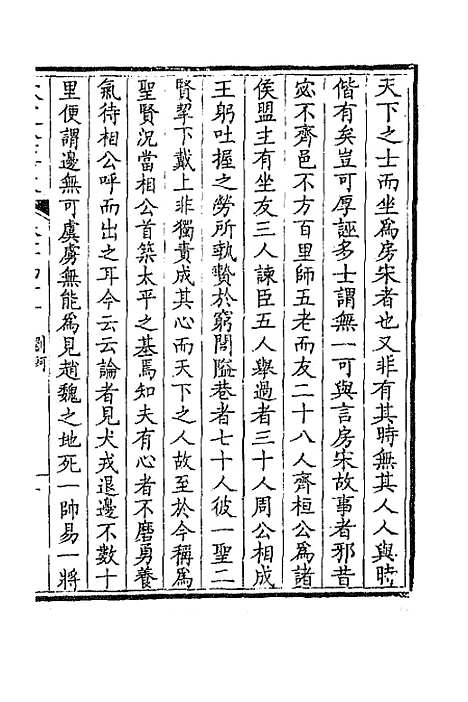 天下之士而坐爲房宋者也又非有其時無其人人與時
偕有矣豈可厚誣多士謂無一可與言房宋故事者邪昔
宓不齊邑不方百里師五老而友二十八人齊桓公爲諸
侯盟主有坐友三人諫臣五人舉過者三十人周公相成
王躬吐握之勞所執贄於窮閭隘巷者七十人彼一聖二
賢挈下戴上非獨責成其心而天下之人故至於今稱爲
聖賢況當相公首築太平之基焉知夫有心者不磨勇養
氣待相公呼而出之耳今云云論者見犬戎退邊不數十
里便謂邊無可虞虜無能爲見趙魏之地死一帥易一將
劉軻